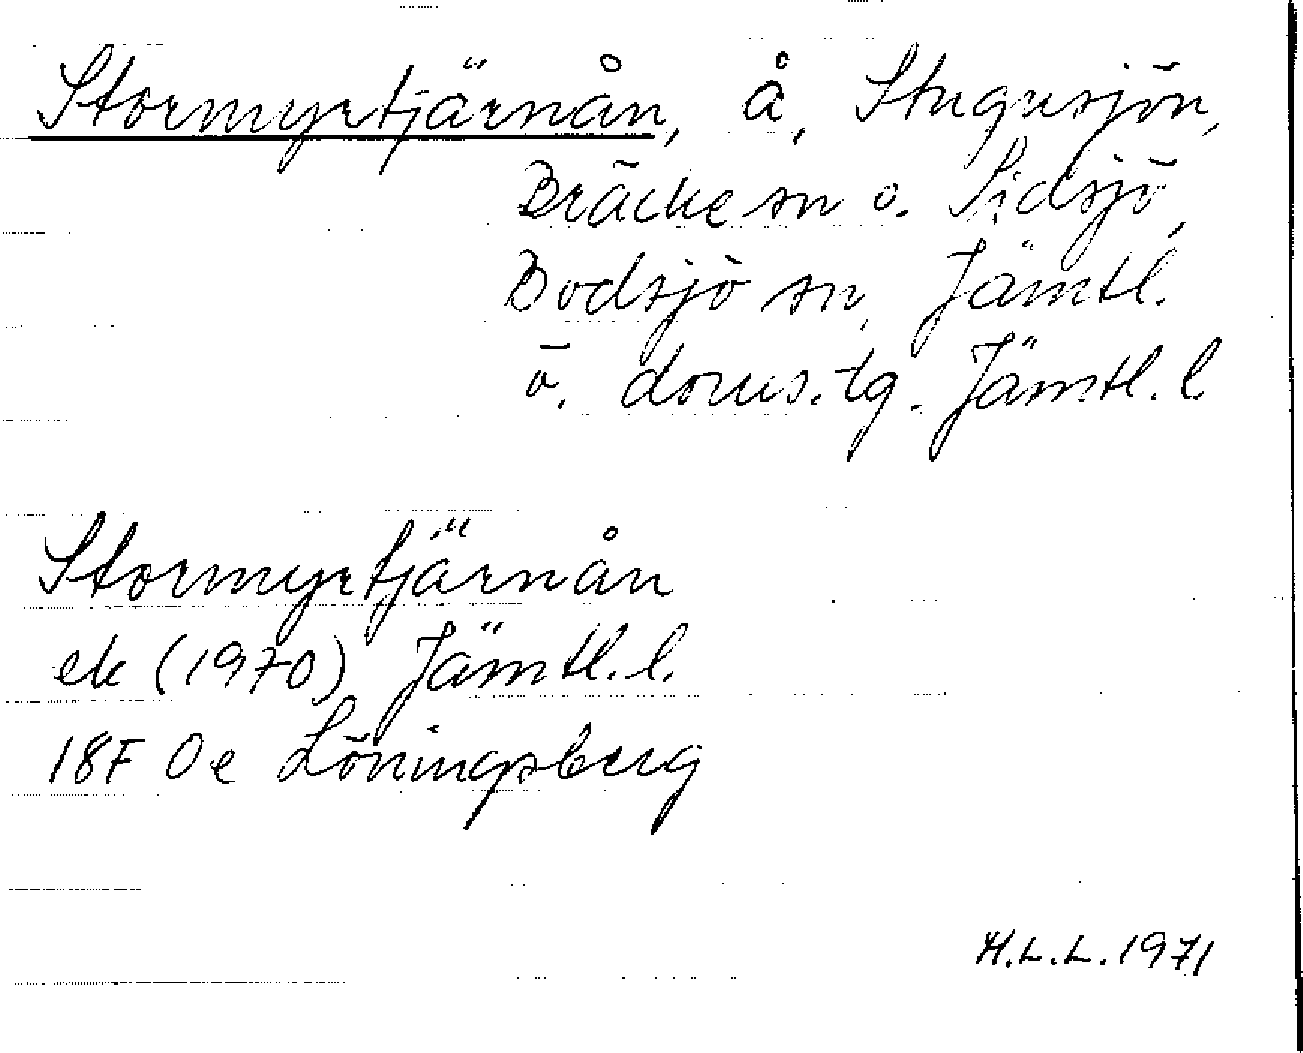 Stormyrtjärnån, å, Stugusjön,
Bräcke sn o. Sidsjö,
Bodsjö sn, Jämtl.
ö. doms.tg. Jämtl. l.
Stormyrtjärnån
ek (1970) Jämtl. l.
18F 0e Löningsberg
H.L.L. 1971